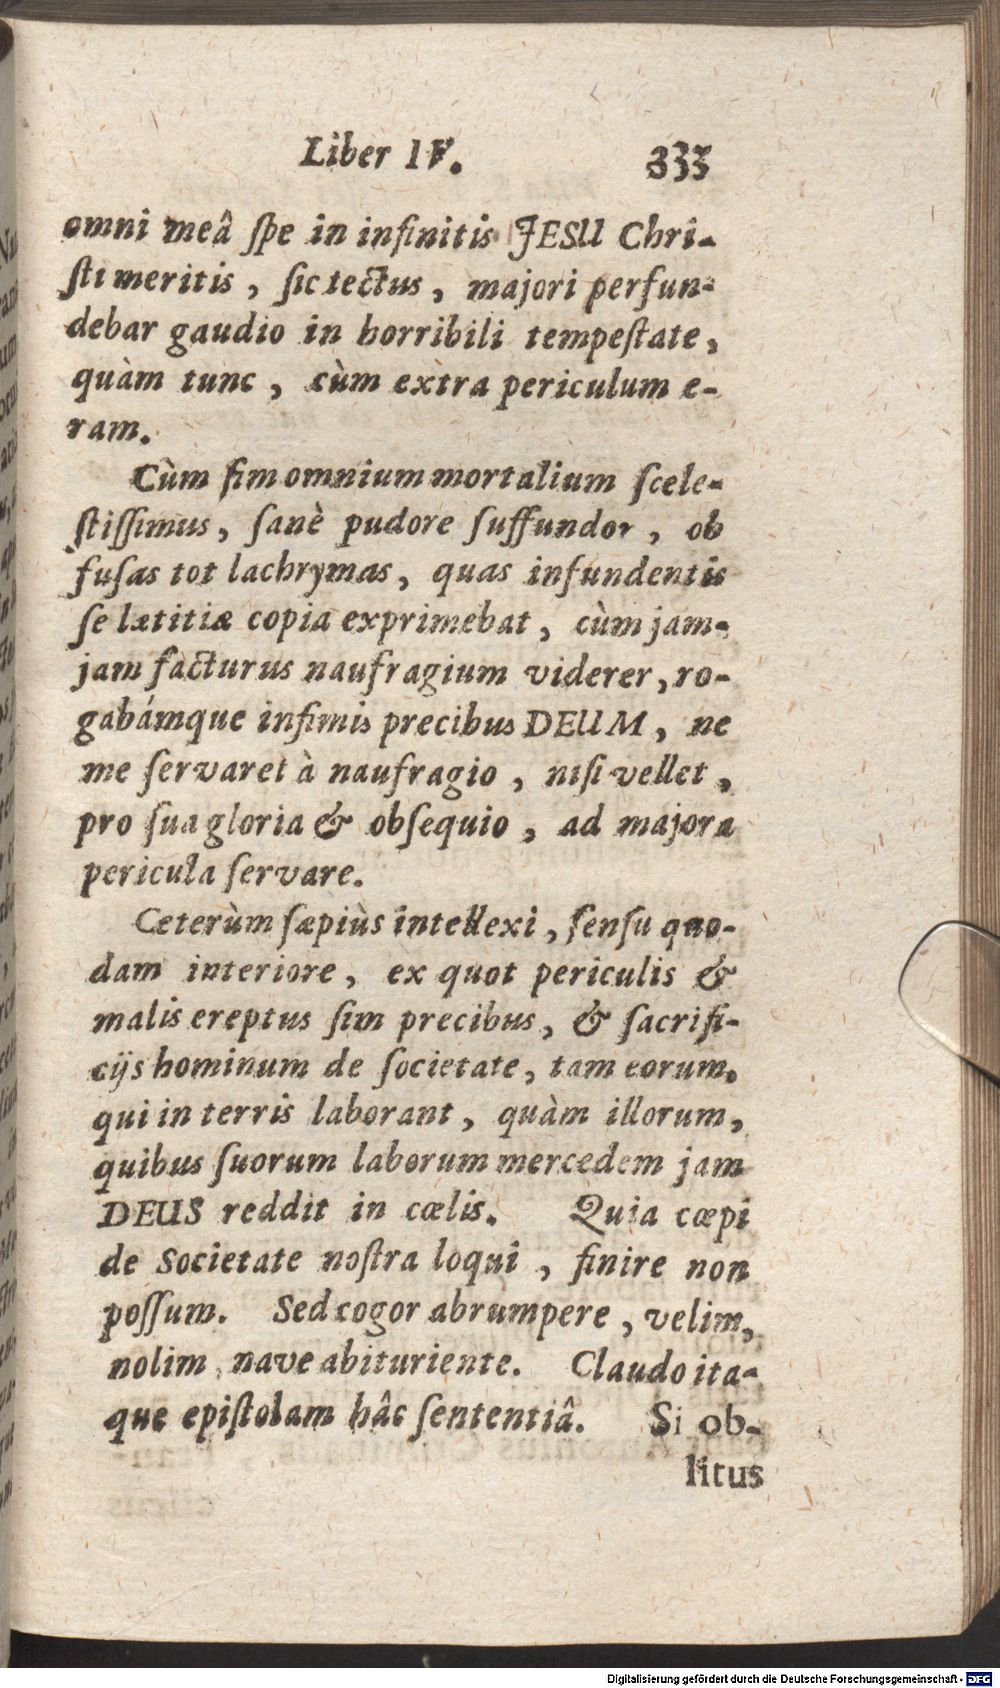 Liber IV. 333
omni meâ ſpe in infinitis JESU Chri-
ſti meritis, ſic tectus, majori perfun-
debar gaudio in horribili tempeſtate,
quàm tunc, cùm extra periculum e-
ram.
Cùm ſim omnium mortalium ſcele-
ſtiſſimus, ſanè pudore ſuffundor, ob
fuſas tot lachrymas, quas infundentis
ſe lætitiæ copia exprimebat, cùm jam-
jam facturus naufragium viderer, ro-
gabámque infimis precibus DEUM, ne
me ſervaret à naufragio, niſi vellet,
pro ſua gloria & obſequio, ad majora
pericula ſervare.
Ceterùm ſæpiùs intellexi, ſenſu quo-
dam interiore, ex quot periculis &
malis ereptus ſim precibus, & ſacrifi-
cijs hominum de ſocietate, tam eorum,
qui in terris laborant, quàm illorum,
quibus ſuorum laborum mercedem jam
DEUS reddit in cœlis. Quia cœpi
de Societate noſtra loqui, finire non
poſſum. Sed cogor abrumpere, velim,
nolim, nave abituriente. Claudo ita-
que epiſtolam hâc ſententiâ. Si ob-
litus
Digitalisierung gefördert durch die Deutsche Forschungsgemeinschaft - DFG